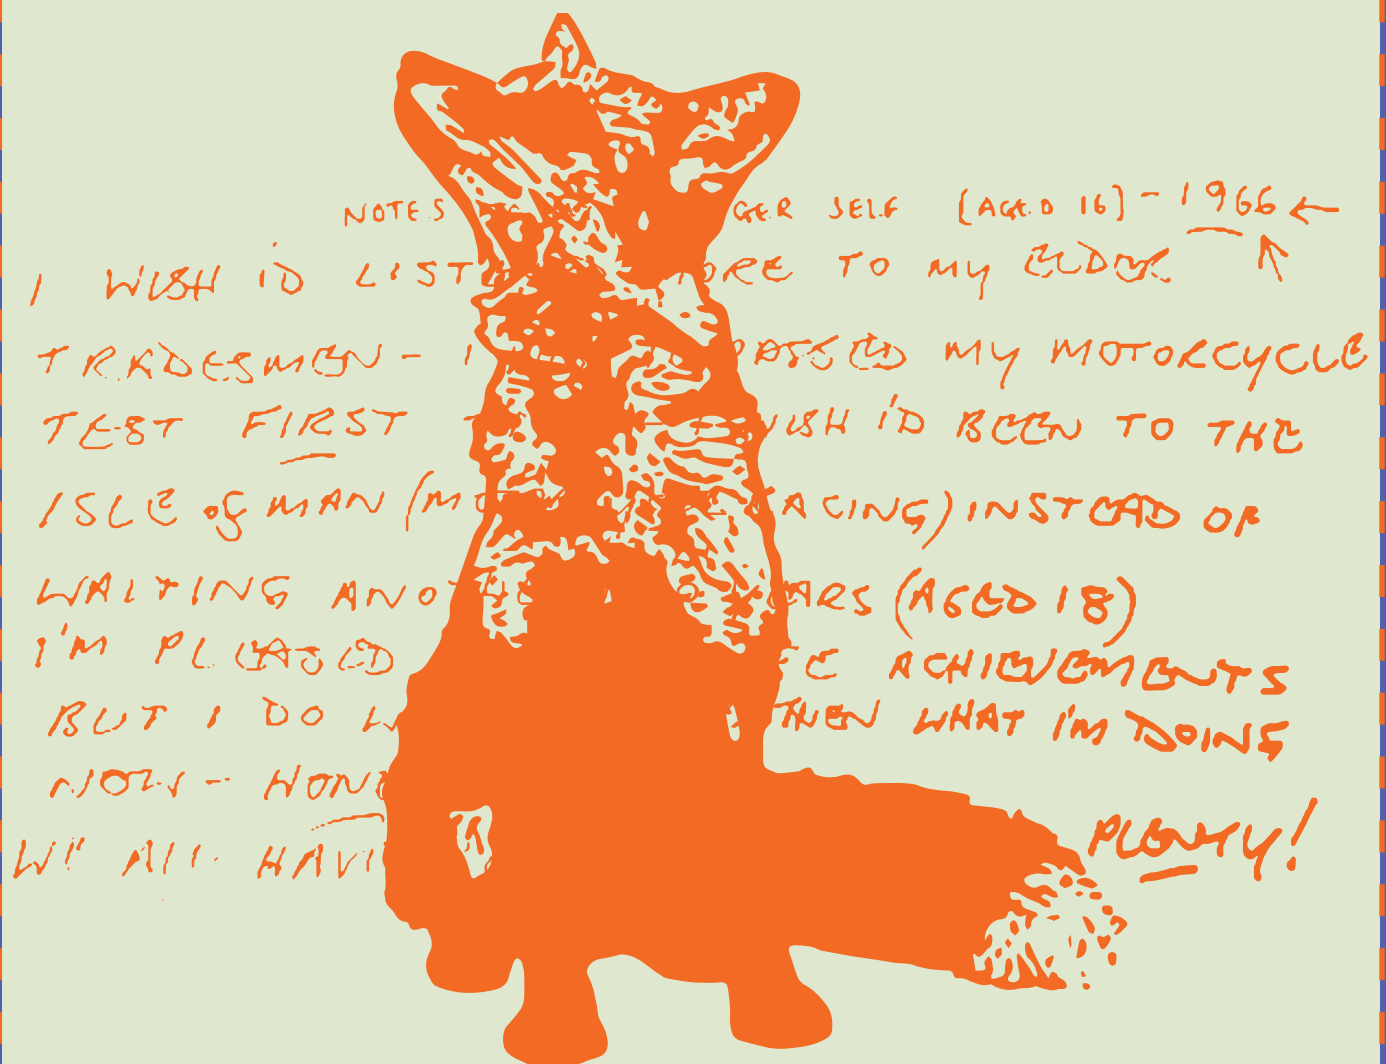 NOTES GER SELF [AGED 16] - 1966 ←
I WISH I'D LIST ORE TO MY ELDER
TRADESMEN - I PASSED MY MOTORCYCLE
TEST FIRST - WISH I'D BEEN TO THE
ISLE OF MAN (MO RACING) INSTEAD OF
WAITING ANOTHE ARS (AGED 18)
I'M PLEASED FE ACHIEVEMENTS
BUT I DO W THEN WHAT I'M DOING
NOW - HONE
WE ALL HAVE PLENTY!